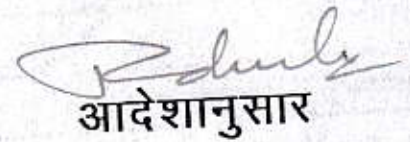 आदेशानुसार